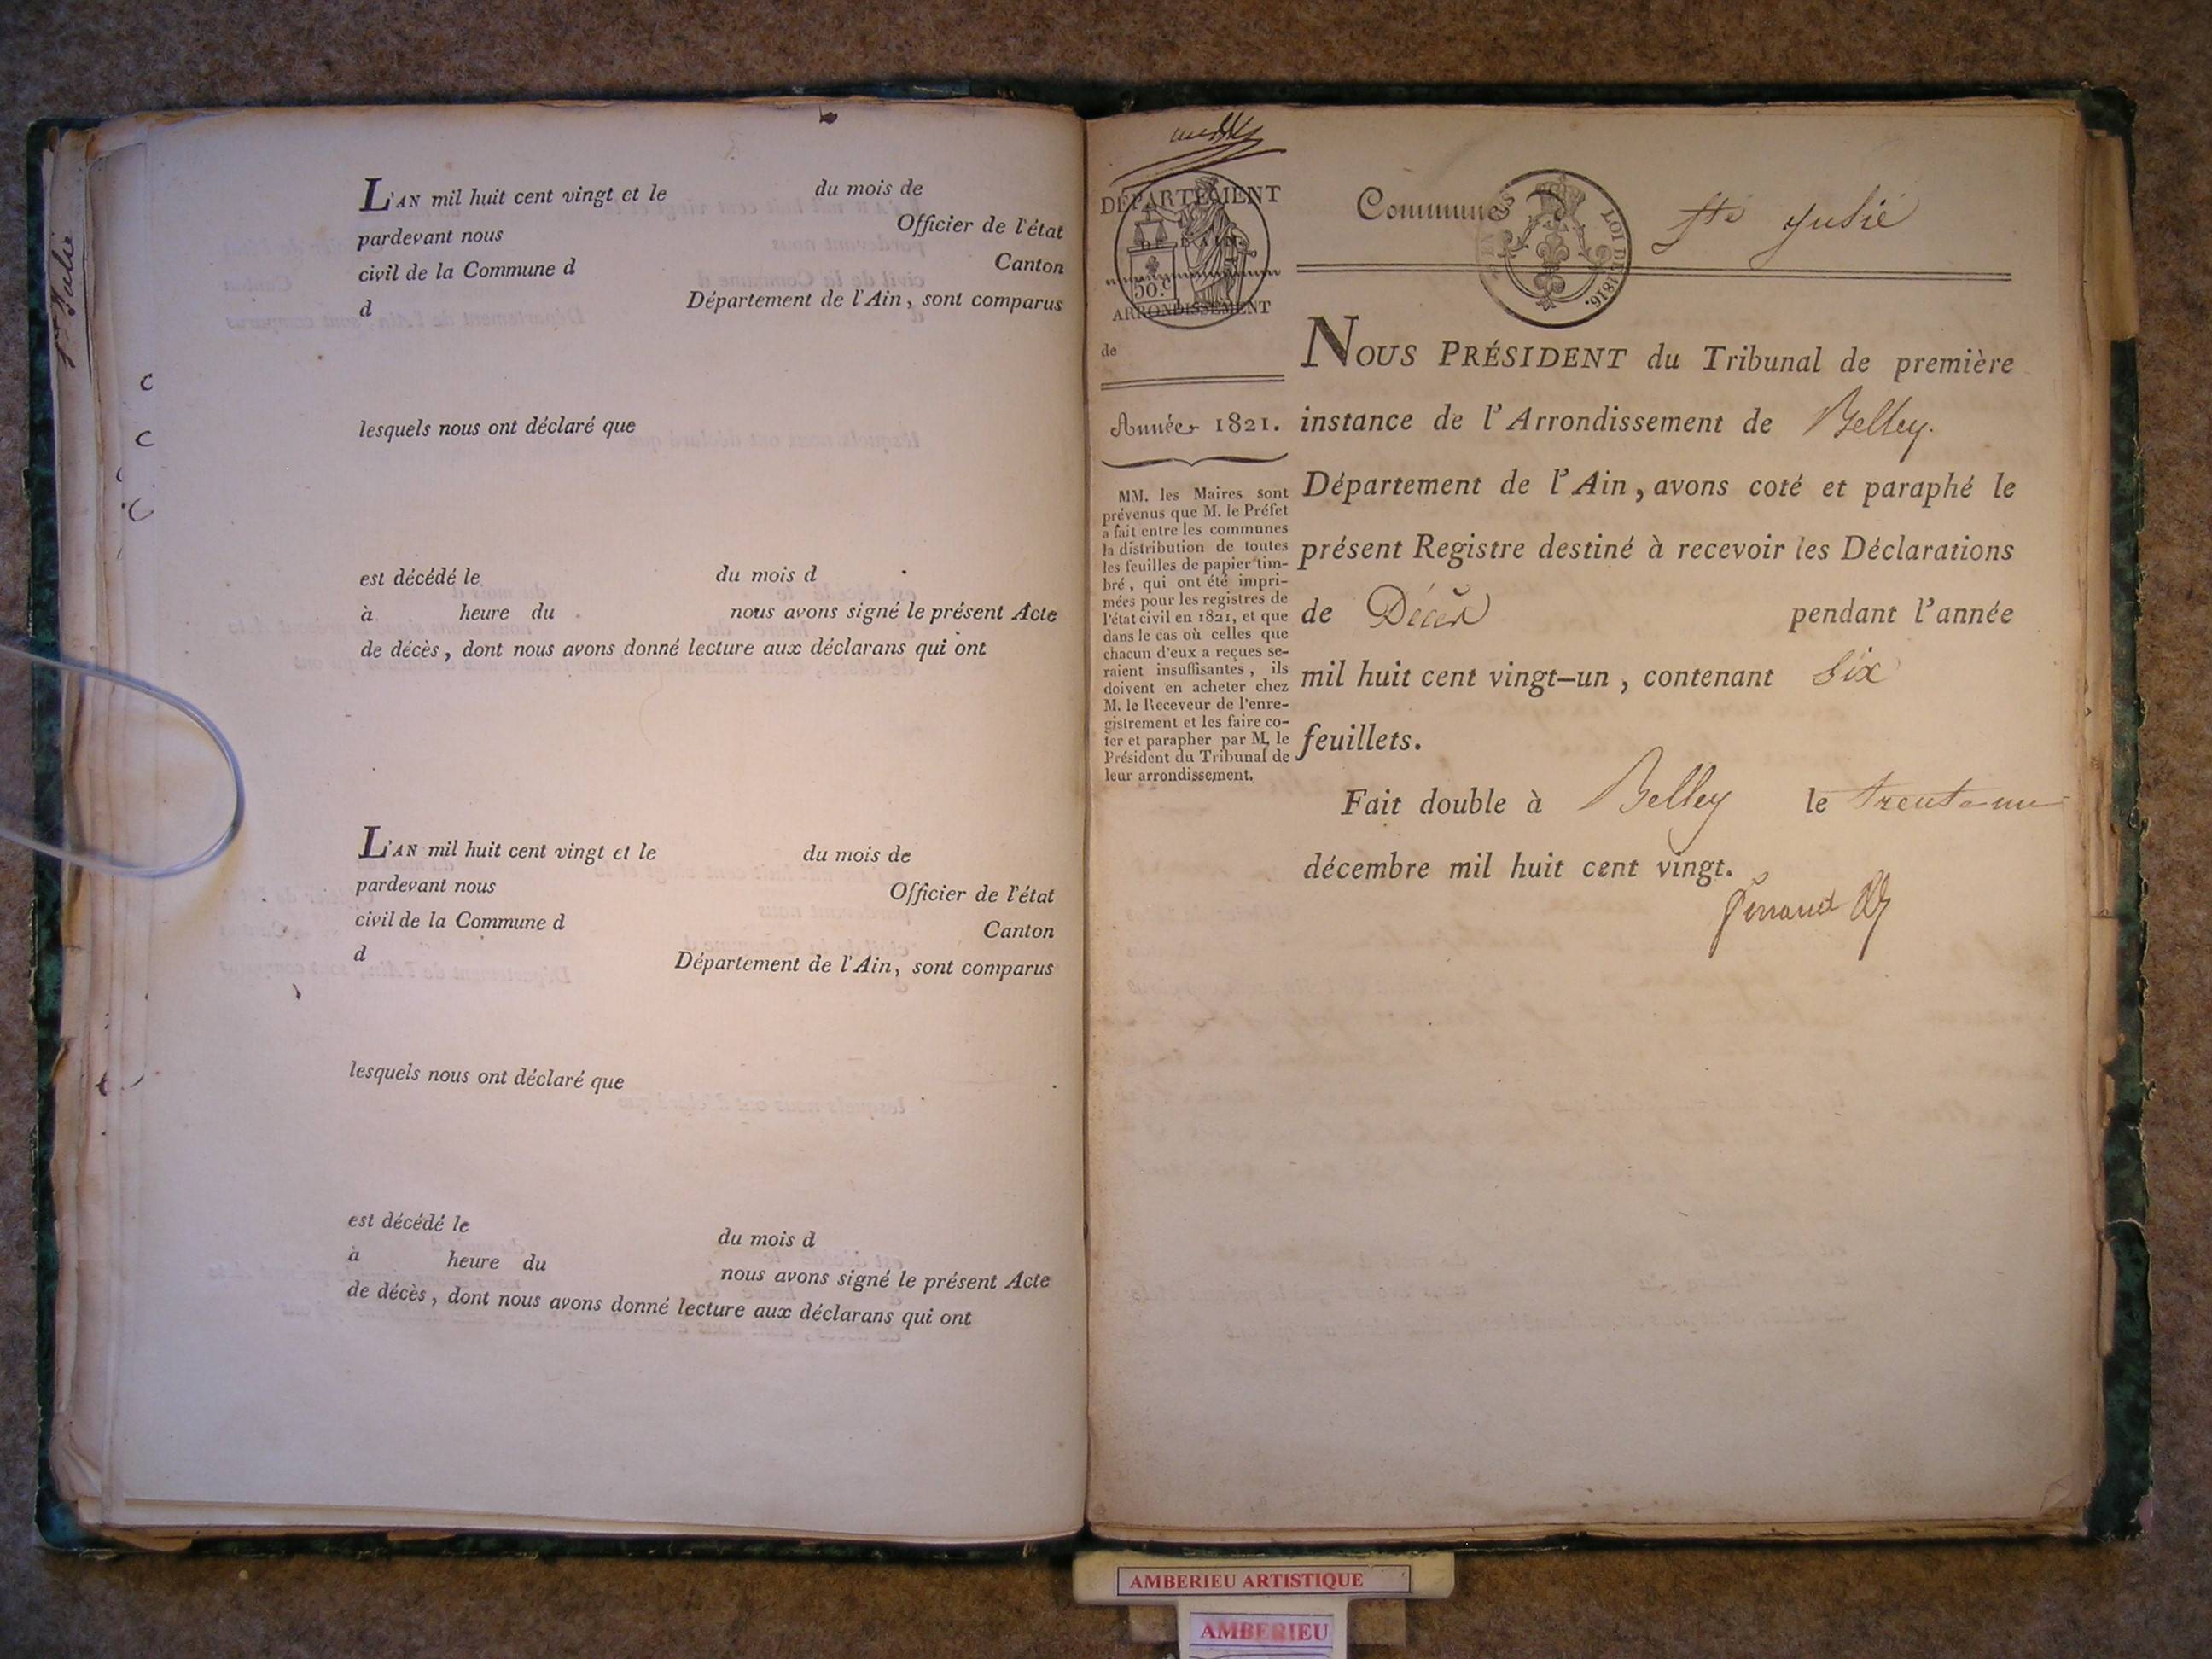 Ste Julie
L'AN mil huit cent vingt et le du mois de
pardevant nous Officier de l'état
civil de la Commune d Canton
d Département de l'Ain, sont comparus
lesquels nous ont déclaré que
est décédé le du mois d
à heure du nous avons signé le présent Acte
de décès, dont nous avons donné lecture aux déclarans qui ont
L'AN mil huit cent vingt et le du mois de
pardevant nous Officier de l'état
civil de la Commune d Canton
d Département de l'Ain, sont comparus
lesquels nous ont déclaré que
est décédé le du mois d
à heure du nous avons signé le présent Acte
de décès, dont nous avons donné lecture aux déclarans qui ont
DÉPARTEMENT
DE L'AIN.
50.c
ARRONDISSEMENT
de
Année 1821.
MM. les Maires sont
prévenus que M. le Préfet
a fait entre les communes
la distribution de toutes
les feuilles de papier tim-
bré, qui ont été impri-
mées pour les registres de
l'état civil en 1821, et que
dans le cas où celles que
chacun d'eux a reçues se-
raient insuffisantes, ils
doivent en acheter chez
M. le Receveur de l'enre-
gistrement et les faire co-
ter et parapher par M. le
Président du Tribunal de
leur arrondissement.
Commune Ste Julie
LOI DE 1816.
NOUS PRÉSIDENT du Tribunal de première
instance de l'Arrondissement de Belley.
Département de l'Ain, avons coté et paraphé le
présent Registre destiné à recevoir les Déclarations
de Décès pendant l'année
mil huit cent vingt-un, contenant Six
feuillets.
Fait double à Belley le trente-un
décembre mil huit cent vingt.
AMBERIEU ARTISTIQUE
AMBERIEU